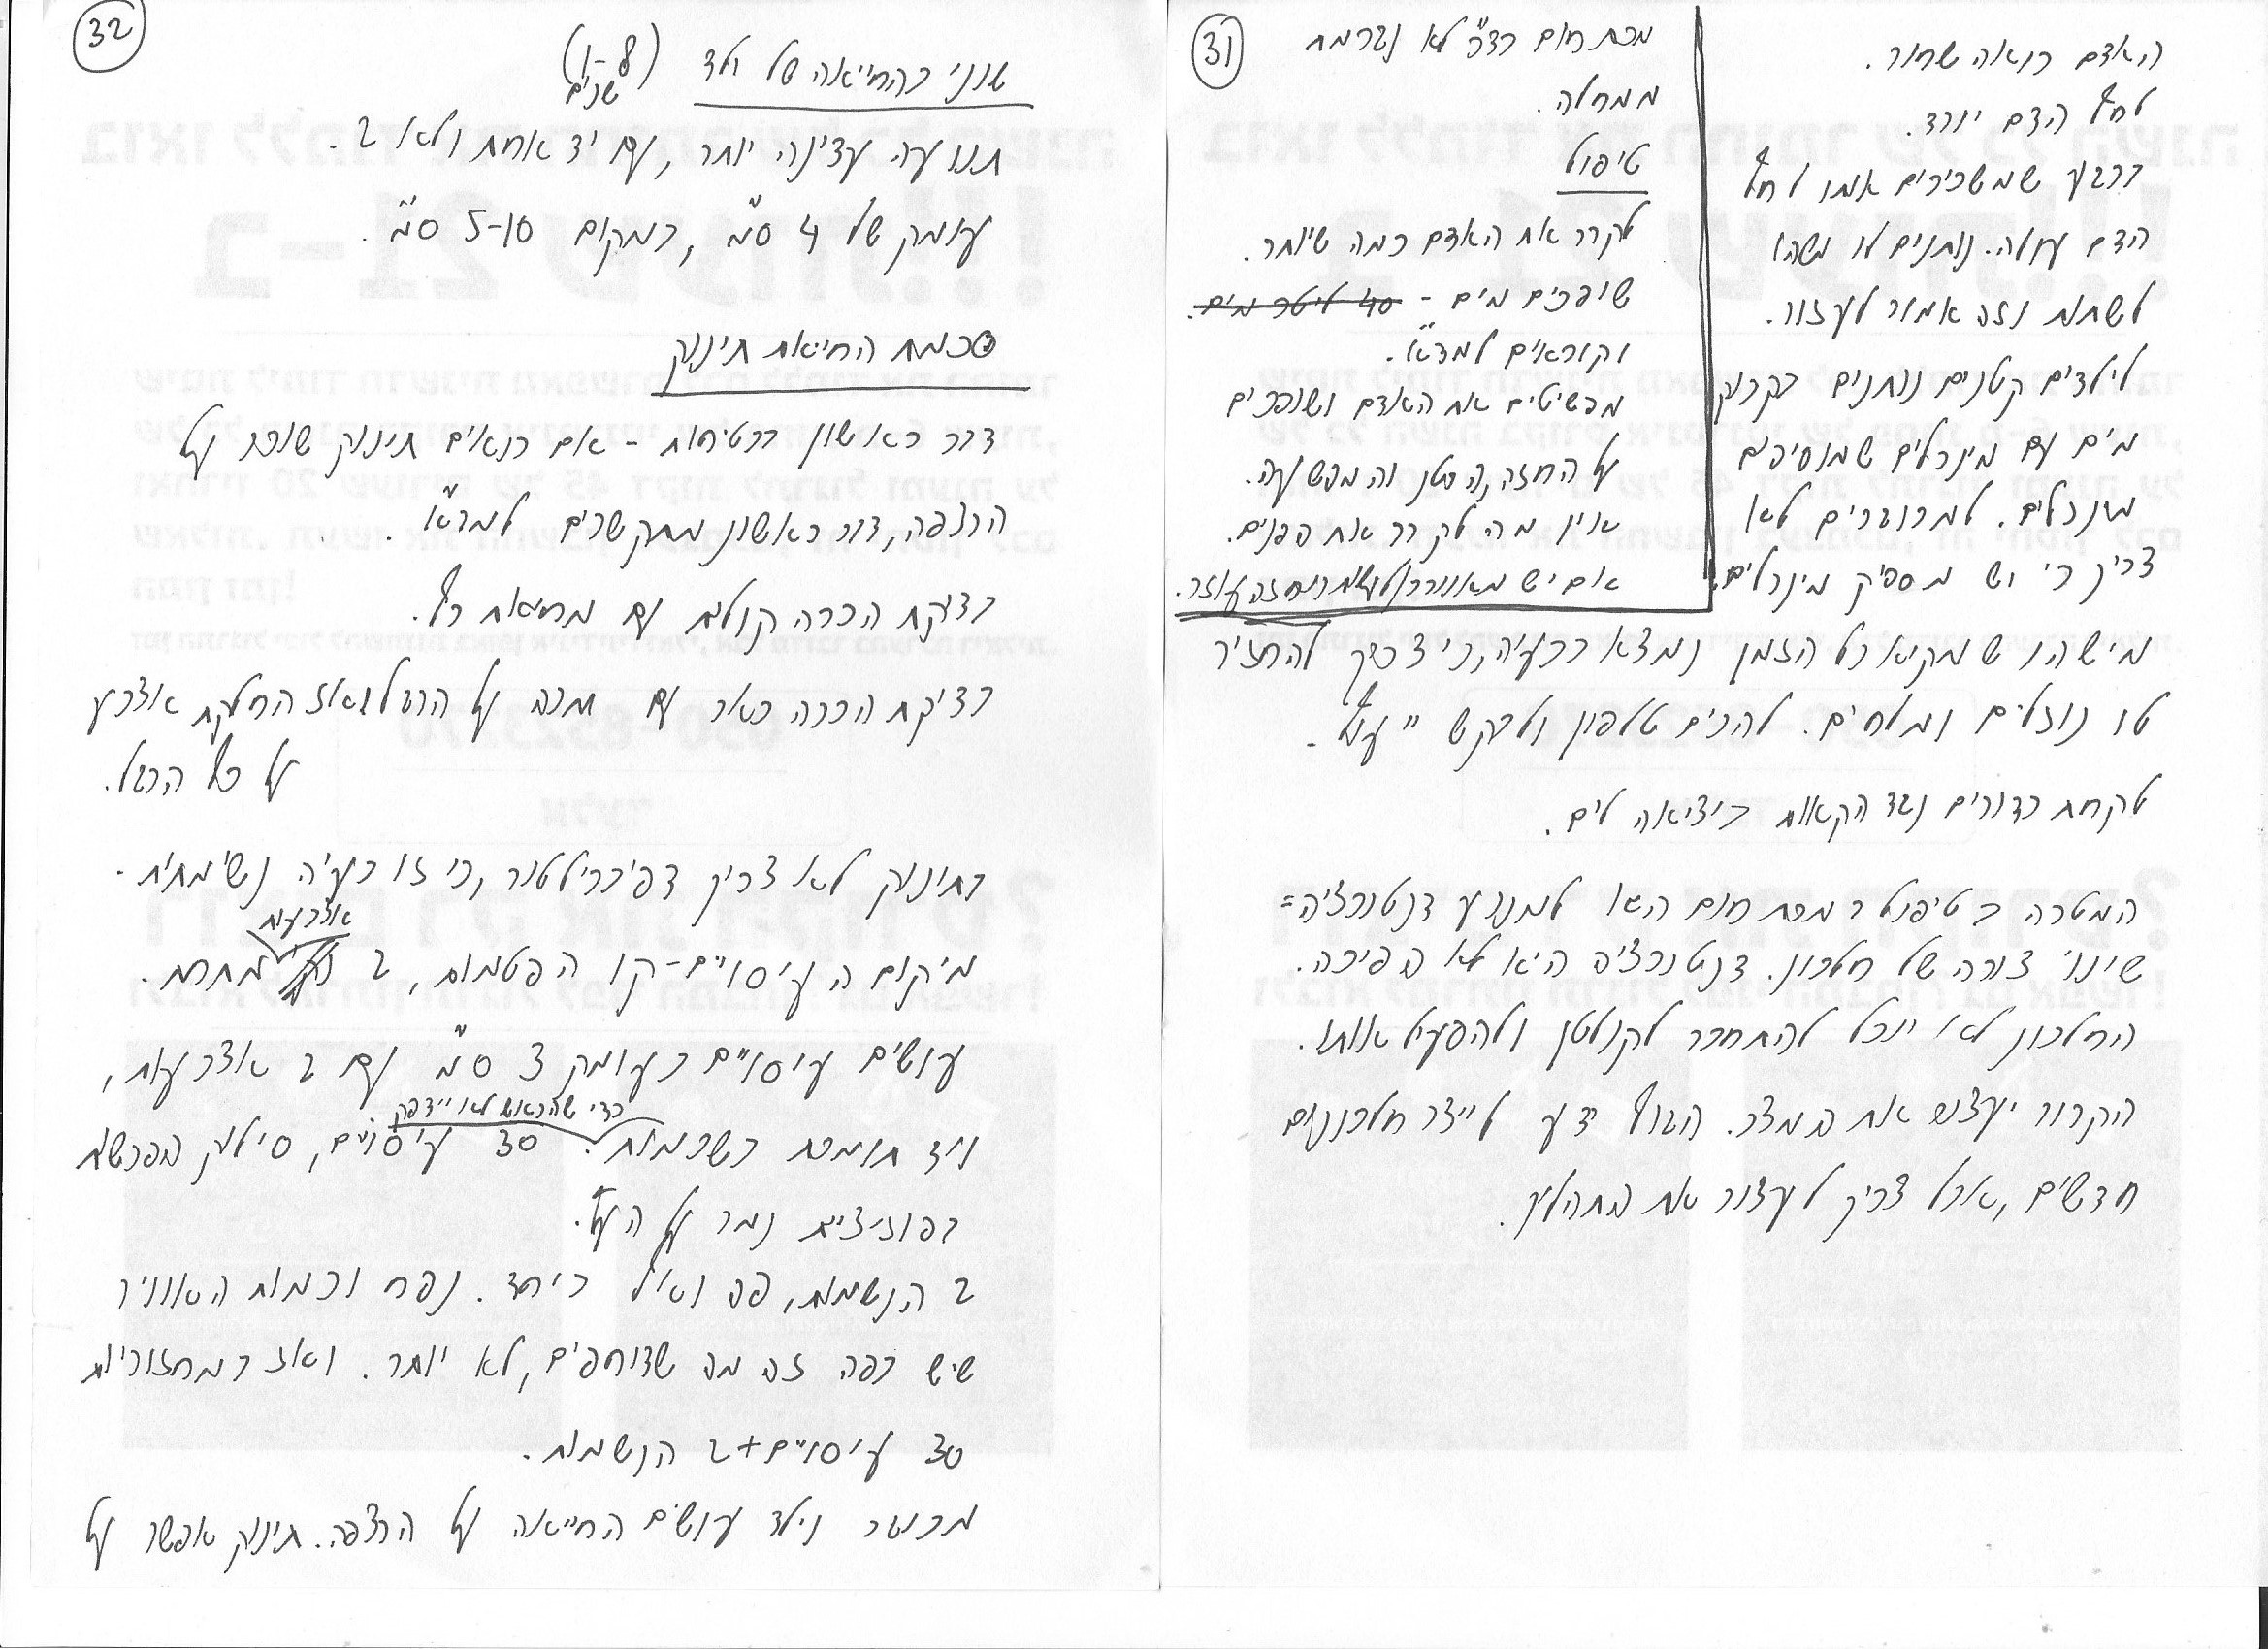 31
האדם רואה שחור.
לחץ הדם יורד.
ברגע שמשכיבים אותו לחץ
הדם עולה. נותנים לו משהו
לשתות וזה אמור לעזור.
לילדים קטנים נותנים בקבוק
מים עם מינרלים שמוסיפים
מינרלים. למבוגרים לא
צריך כי יש מספיק מינרלים.
מכת חום בד"כ לא נגרמת
ממחלה.
טיפול
לקרר את האדם כמה שיותר.
שופכים מים - 40 ליטר מים.
וקוראים למד"א.
מפשיטים את האדם ושופכים
על החזה, הבטן והמפשעה.
אין מה לקרר את הפנים.
אם יש מאוורר
זה עוזר.
מישהו שמקיא כל הזמן נמצא בבעיה, כי צריך להחזיר
לו נוזלים ומלחים. להרים טלפון ולבקש ייעוץ.
לקחת כדורים נגד הקאות ביציאה לים.
המטרה בטיפול במכת חום היא למנוע דנטורציה=
שינוי צורה של חלבון. דנטורציה היא לא הפיכה.
החלבון לא יוכל להתחבר לקולטן ולהפעיל אותו.
הקרור יעצור את המצב. הגוף ידע לייצר חלבונים
חדשים, אבל צריך לעצור את התהליך.
32
שוני בהחייאה של ילד (1-8 שנים)
תנועה עדינה יותר, עם יד אחת ולא 2.
עומק של 4 ס"מ, במקום 5-10 ס"מ.
סכמת החייאת תינוק
דבר ראשון בטיחות - אם רואים תינוק שוכב על
הרצפה, דבר ראשון מתקשרים למד"א.
בדיקת הכרה קולית עם מחיאות כף.
בדיקת הכרה כאב עם מכה על הרגל ואז החלקת אצבע
על כף הרגל.
בתינוק לא צריך דפיברילטור, כי זו בעיה נשימתית.
מיקום העיסויים - קו הפטמות, 2 אצבעות מתחת.
עושים עיסויים בעומק 3 ס"מ עם 2 אצבעות,
ויד תומכת בשכמות כדי שהראש לא יידפק. 30 עיסויים, סילוק הפרשות
בפוזיציית נמר על העץ.
2 הנשמות, פה ואף ביחד. נפח וכמות האוויר
שיש בפה זה מה שדוחפים, לא יותר. ואז במחזוריות
30 עיסויים+2 הנשמות.
מבוגר וילד עושים החייאה על הרצפה. תינוק אפשר על